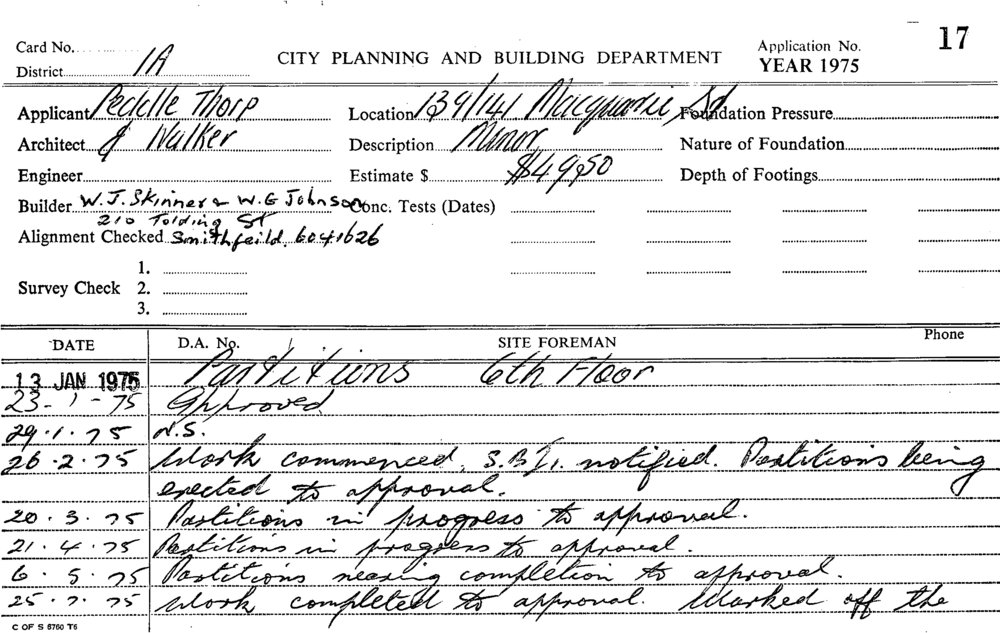 Card No.
District 1A
CITY PLANNING AND BUILDING DEPARTMENT
Application No. 17
YEAR 1975
Applicant Peddle Thorp
Location 139/141 Macquarie St
Foundation Pressure
Architect & Walker
Description Minor
Nature of Foundation
Engineer
Estimate $ $49,50
Depth of Footings
Builder W. J. Skinner & W. G Johnson
Conc. Tests (Dates)
210 Tolding ST
Alignment Checked Smithfeild. 6041626
1.
Survey Check 2.
3.
DATE D.A. No. SITE FOREMAN Phone
13 JAN 1975 Partitions 6th Floor
23-1-75 Approved
29.1.75 N.S.
26.2.75 Work commenced, S.B.I. notified. Partitions being
erected to approval.
20.3.75 Partitions in progress to approval.
21.4.75 Partitions in progress to approval.
6.5.75 Partitions nearing completion to approval.
25.7.75 Work completed to approval. Marked off the
C OF S 6760 T5